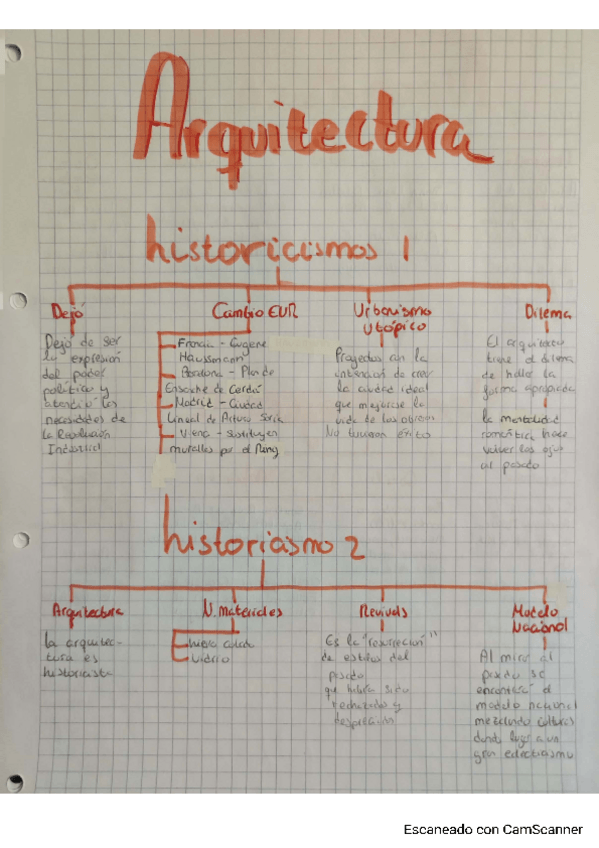 Arquitectura
historicismos 1
Dejó
Dejó de ser
la expresión
del poder
político y
atendió las
necesidades de
la Revolución
Industrial
Cambio EUR
Francia - Eugene
Haussmann
Barcelona - Plan de
Ensache de Cerdá
Madrid - Ciudad
Lineal de Arturo Soria
Viena - Sustituyen
murallas por el Ring
Urbanismo
utópico
Proyectos con la
intención de crear
la ciudad ideal
que mejorase la
vida de los obreros
No tuvieron éxito
Dilema
El arquitecto
tiene el dilema
de hallar la
forma apropiada
la mentalidad
romántica hace
volver los ojos
al pasado
historiasmo 2
Arquitectura
la arquitec-
tura es
historicista
N. materiales
hierro colado
vidrio
Revivals
Es la "resurrección"
de estilos del
pasado
que había sido
rechazado y
despreciado
Modelo
Nacional
Al mirar al
pasado se
encontrará el
modelo nacional
mezclando culturas
dando lugar a un
gran eclecticismo
Escaneado con CamScanner